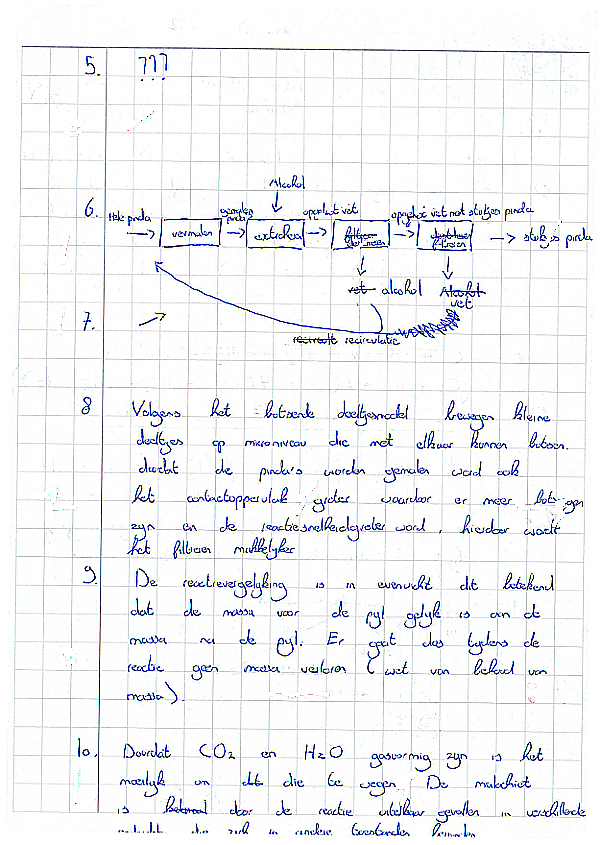 5. ???
Alcohol
6. Hele pinda gemalen pinda opgelost vet opgelost vet met stukjes pinda
vermalen extraheren filtreren stukjes pinda
vet alcohol Alcohol
vet
7.
recirculatie
8 Volgens het botsende deeltjesmodel bewegen kleine
deeltjes op microniveau die met elkaar kunnen botsen.
doordat de pinda's worden gemalen word ook
het contactoppervlak groter waardoor er meer botsingen
zijn en de reactiesnelheid groter word, hierdoor wordt
het filtreren makkelijker
9. De reactievergelijking is in evenwicht dit betekend
dat de massa voor de pijl gelijk is aan de
massa na de pijl. Er gaat dus tijdens de
reactie geen massa verloren (wet van behoud van
massa).
10. Doordat CO2 en H2O gasvormig zijn is het
moeilijk om dit die te wegen. De
is door de reactie uitelkaar gevallen in verschillende